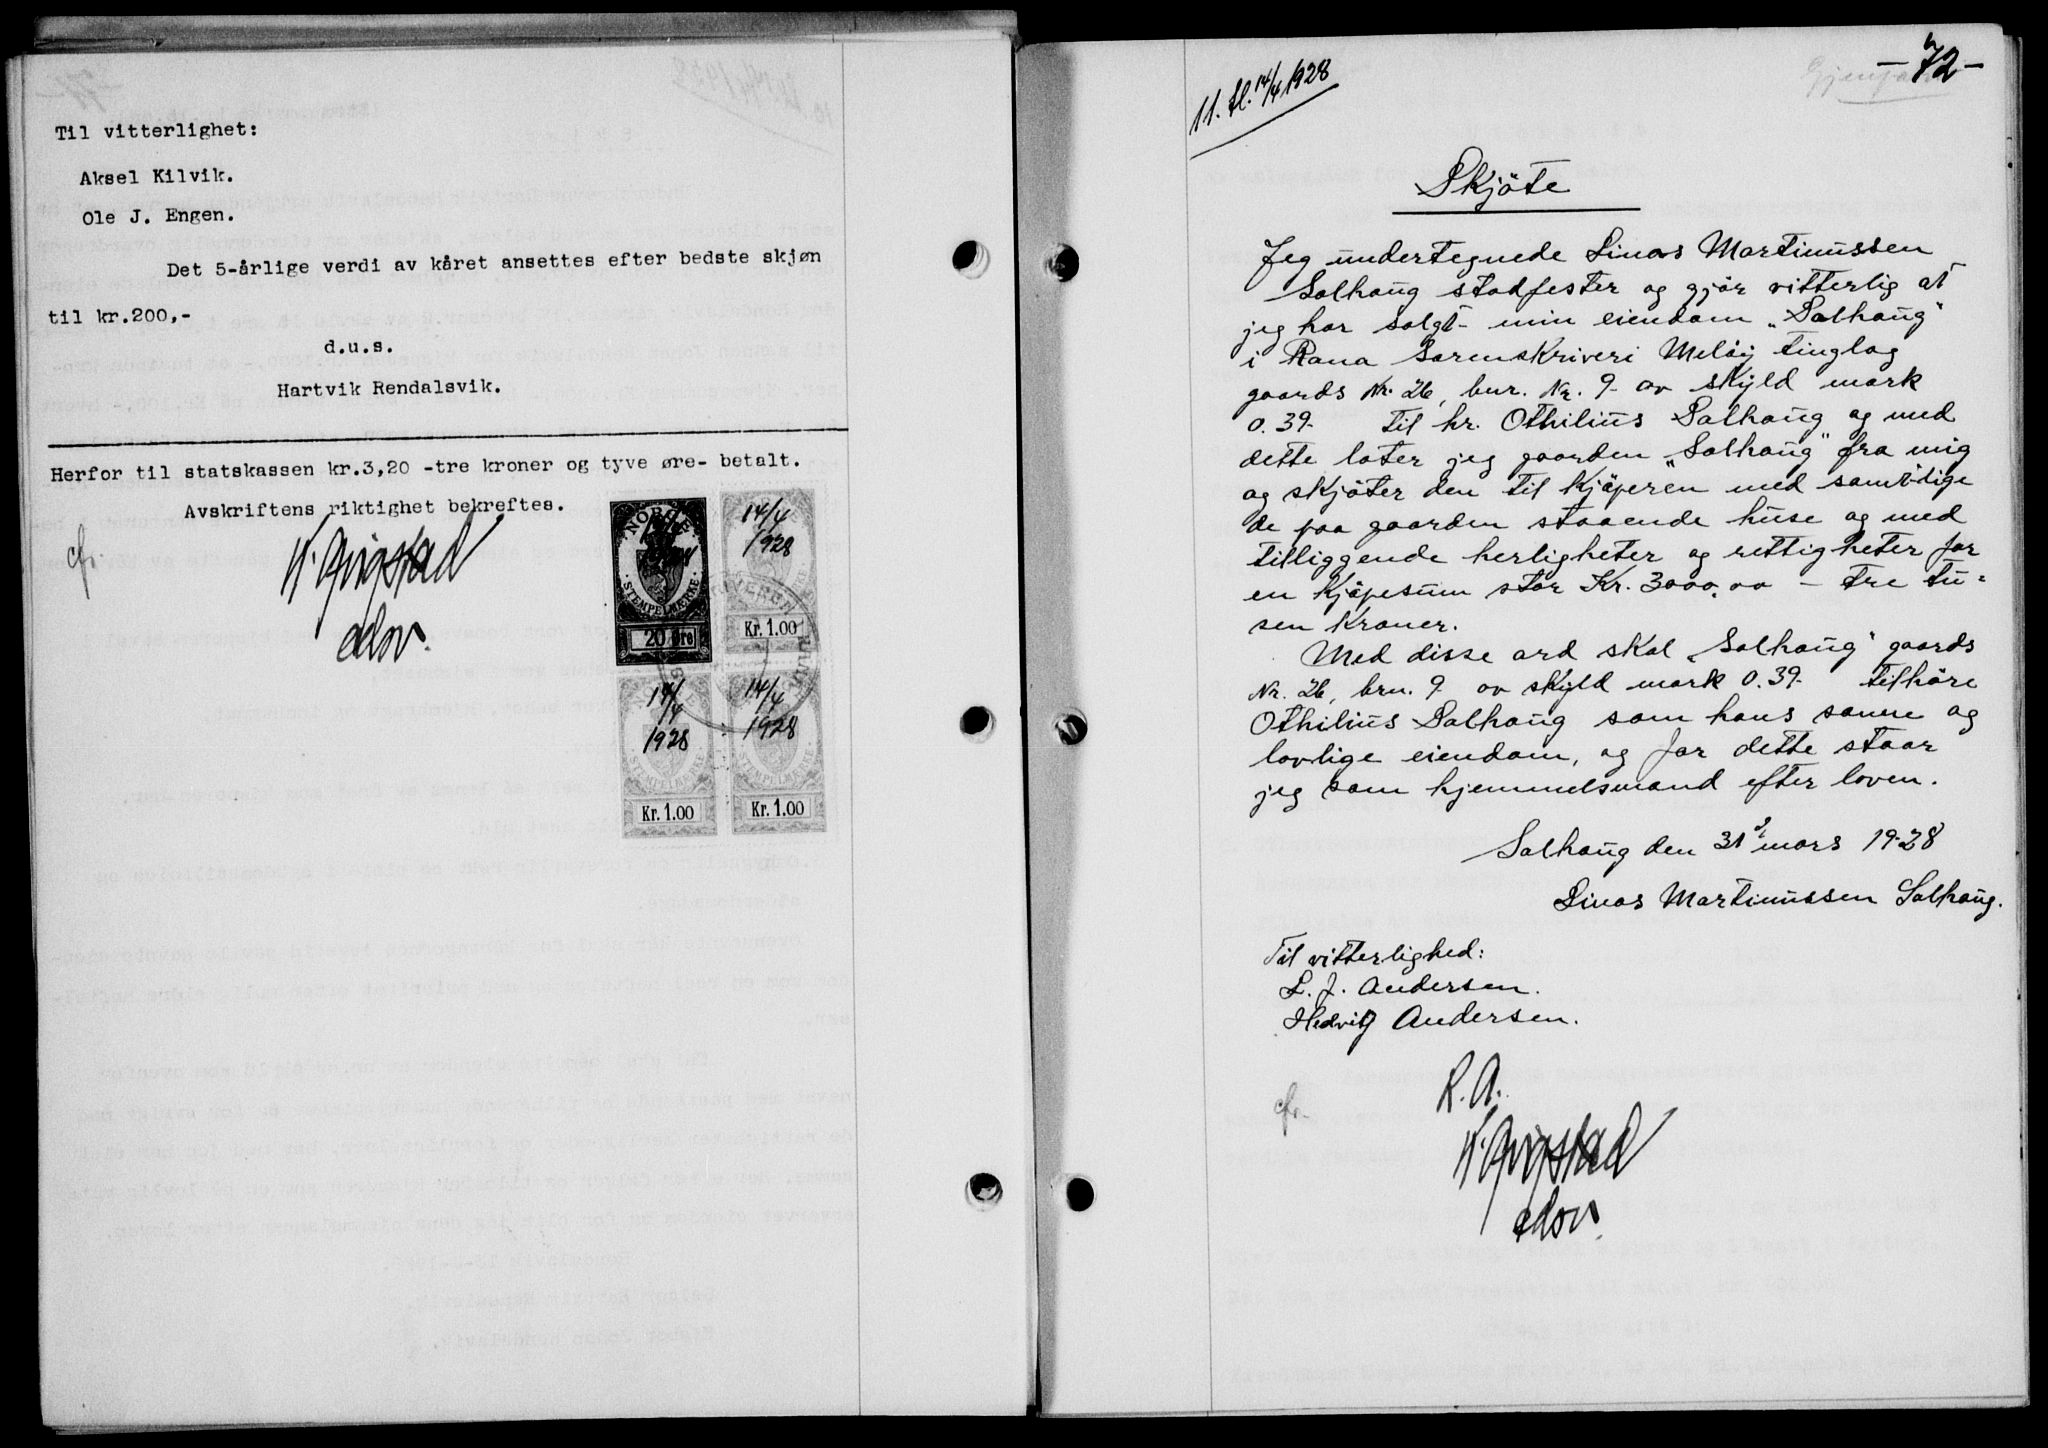 Til vitterlighet:
Aksel Kilvik.
Ole J. Engen.
Det 5-årlige verdi av kåret ansettes efter bedste skjøn
til kr.200,-
d.u.s.
Hartvik Rendalsvik.
Herfor til statskassen kr.3,20 -tre kroner og tyve øre- betalt.
Avskriftens riktighet bekreftes.
cfr.
NORGE
STEMPELMÆRKE
20 Øre
14/4
1928
Kr. 1.00
14/4
1928
STEMPELMÆRKE
Kr. 1.00
14/4
1928
STEMPELMÆRKE
Kr. 1.00
- 72 -
11. tl. 14/4 1928
Skjöte
Jeg undertegnede Linas Martinussen
Solhaug stadfester og gjör vitterlig at
jeg har solgt min eiendom „Solhaug"
i Rana Sorenskriveri Melöy tinglag
gaards Nr. 26, bur. Nr. 9 av skyld mark
0.39 til hr. Othilius Solhaug og med
dette later jeg gaarden „Solhaug" fra mig
og skjöter den til kjöperen med samtlige
de paa gaarden staaende huse og med
tilliggende herligheter og rettigheter for
en kjöpesum stor Kr. 3000.00 - tre tu=
sen kroner.
Med disse ord skal „Solhaug" gaards
Nr. 26, brn. 9 av skyld mark 0.39 tilhöre
Othilius Solhaug som hans sanne og
lovlige eiendom, og for dette staar
jeg som hjemmelsmand efter loven.
Solhaug den 31 mars 1928
Linas Martinussen Solhaug.
Til vitterlighed:
L. J. Andersen.
Hedvig Andersen.
cfr.
R. A.